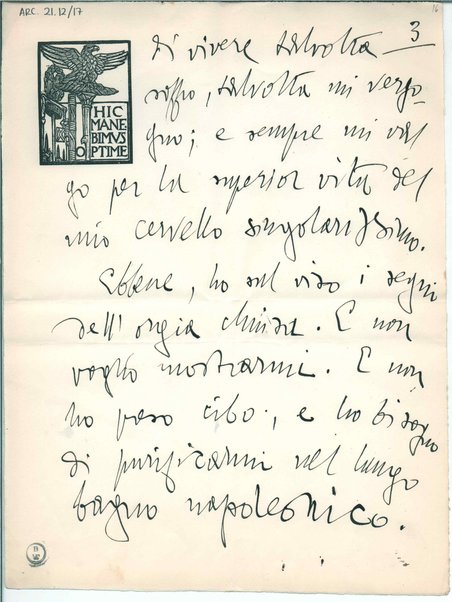 ARC. 21.12/17
16
3
HIC
MANE
BIMVS
OPTIME
di vivere talvolta
soffro, talvolta mi vergo-
gno; e sempre mi val
go per la superior vita del
mio cervello singolarissimo.
Ebbene, ho sul viso i segni
dell'orgia chiusa. E non
voglio mostrarmi. E non
ho preso cibo, e ho bisogno
di purificarmi nel lungo
bagno napoleonico.